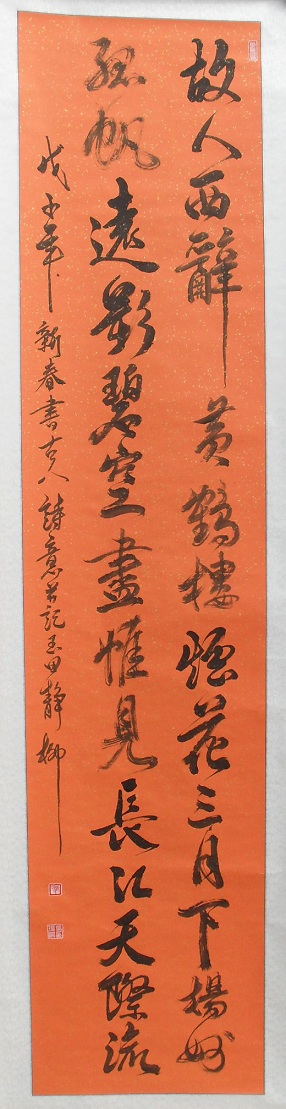 故人西辭黄鶴樓煙花三月下揚州
孤帆遠影碧空盡惟見長江天際流
戊子年新春書古人詩意并記玉田靜柳